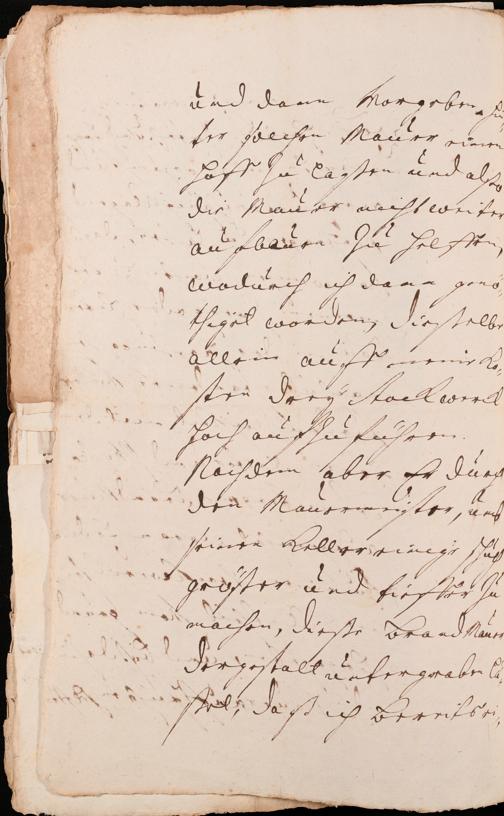 und dann Vorgeben, hin
ter solchen Mauer einen
Hoff zu laßen und also
die Mauer nicht weiter
aufbauen zu helffen,
wodurch ich dann genö,
thiget worden, dieselbe
allein auff meine Ko,
sten drey Stockwerck
hoch aufzuführen.
Nachdem aber Er durch
den Mauermeister, um
seinen Keller einige Schuh
größer und tieffer zu
machen, dieße Brand Mauer
dergestalt untergraben la,
ßet, daß ich bereits ei,